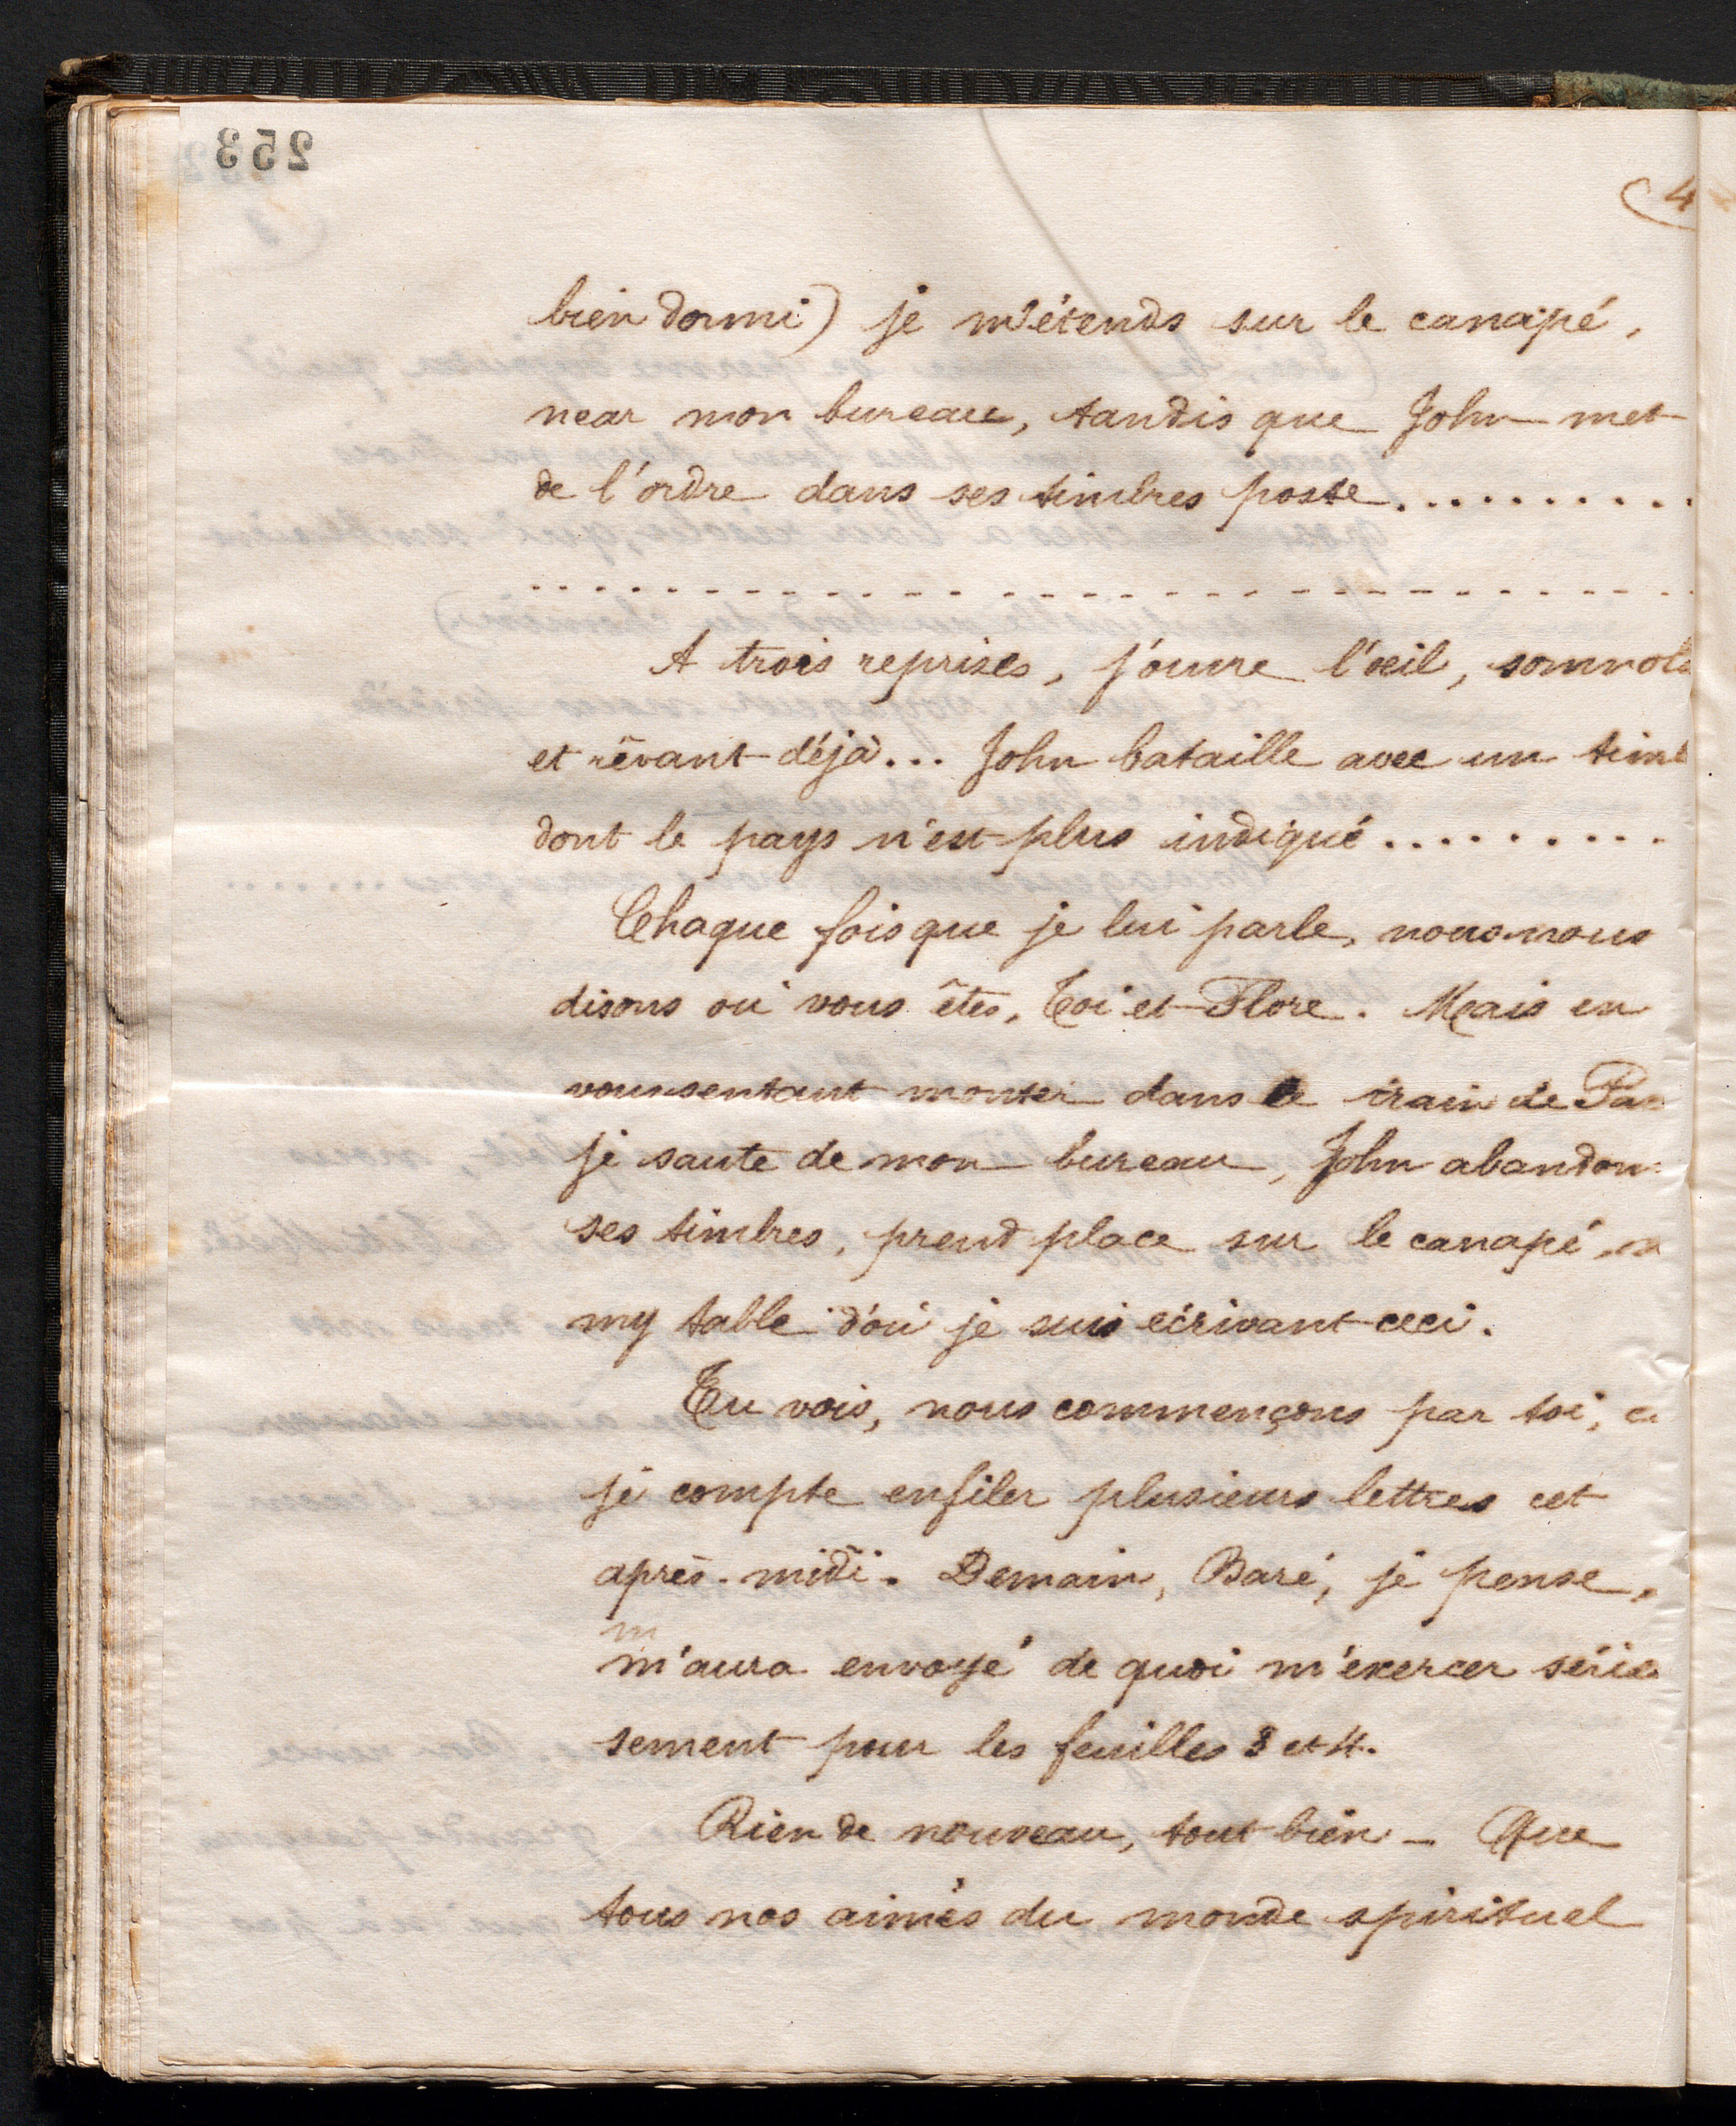 253
(4
bien dormi) je m'étends sur le canapé,
near mon bureau, tandis que John met
de l'ordre dans ses timbres poste..........
..............................
A trois reprises, j'ouvre l'œil, somnol
et rêvant déjà... John bataille avec un timb
dont le pays n'est plus indiqué..........
Chaque fois que je lui parle, nous nous
disons où vous êtes, Toi et Flore. Mais en
vous sentant monter dans le train de Par
je saute de mon bureau, John abandon
ses timbres, prend place sur le canapé,
my table d'où je suis écrivant ceci.
Tu vois, nous commençons par toi,
je compte enfiler plusieurs lettres cet
après-midi. Demain, Baré, je pense,
m
m'aura envoyé de quoi m'exercer série
sement pour les feuilles 3 et 4.
Rien de nouveau, tout bien - Que
tous nos aimés du monde spirituel